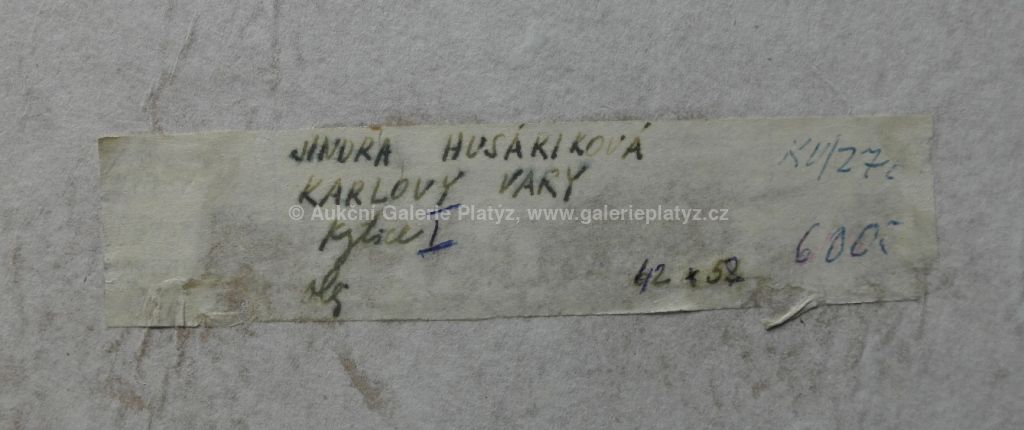 JINDRA HUSÁRIKOVÁ KV/27c
KARLOVY VARY
© Aukční Galerie Platýz, www.galerieplatyz.cz
Kytice I 600
42 x 57